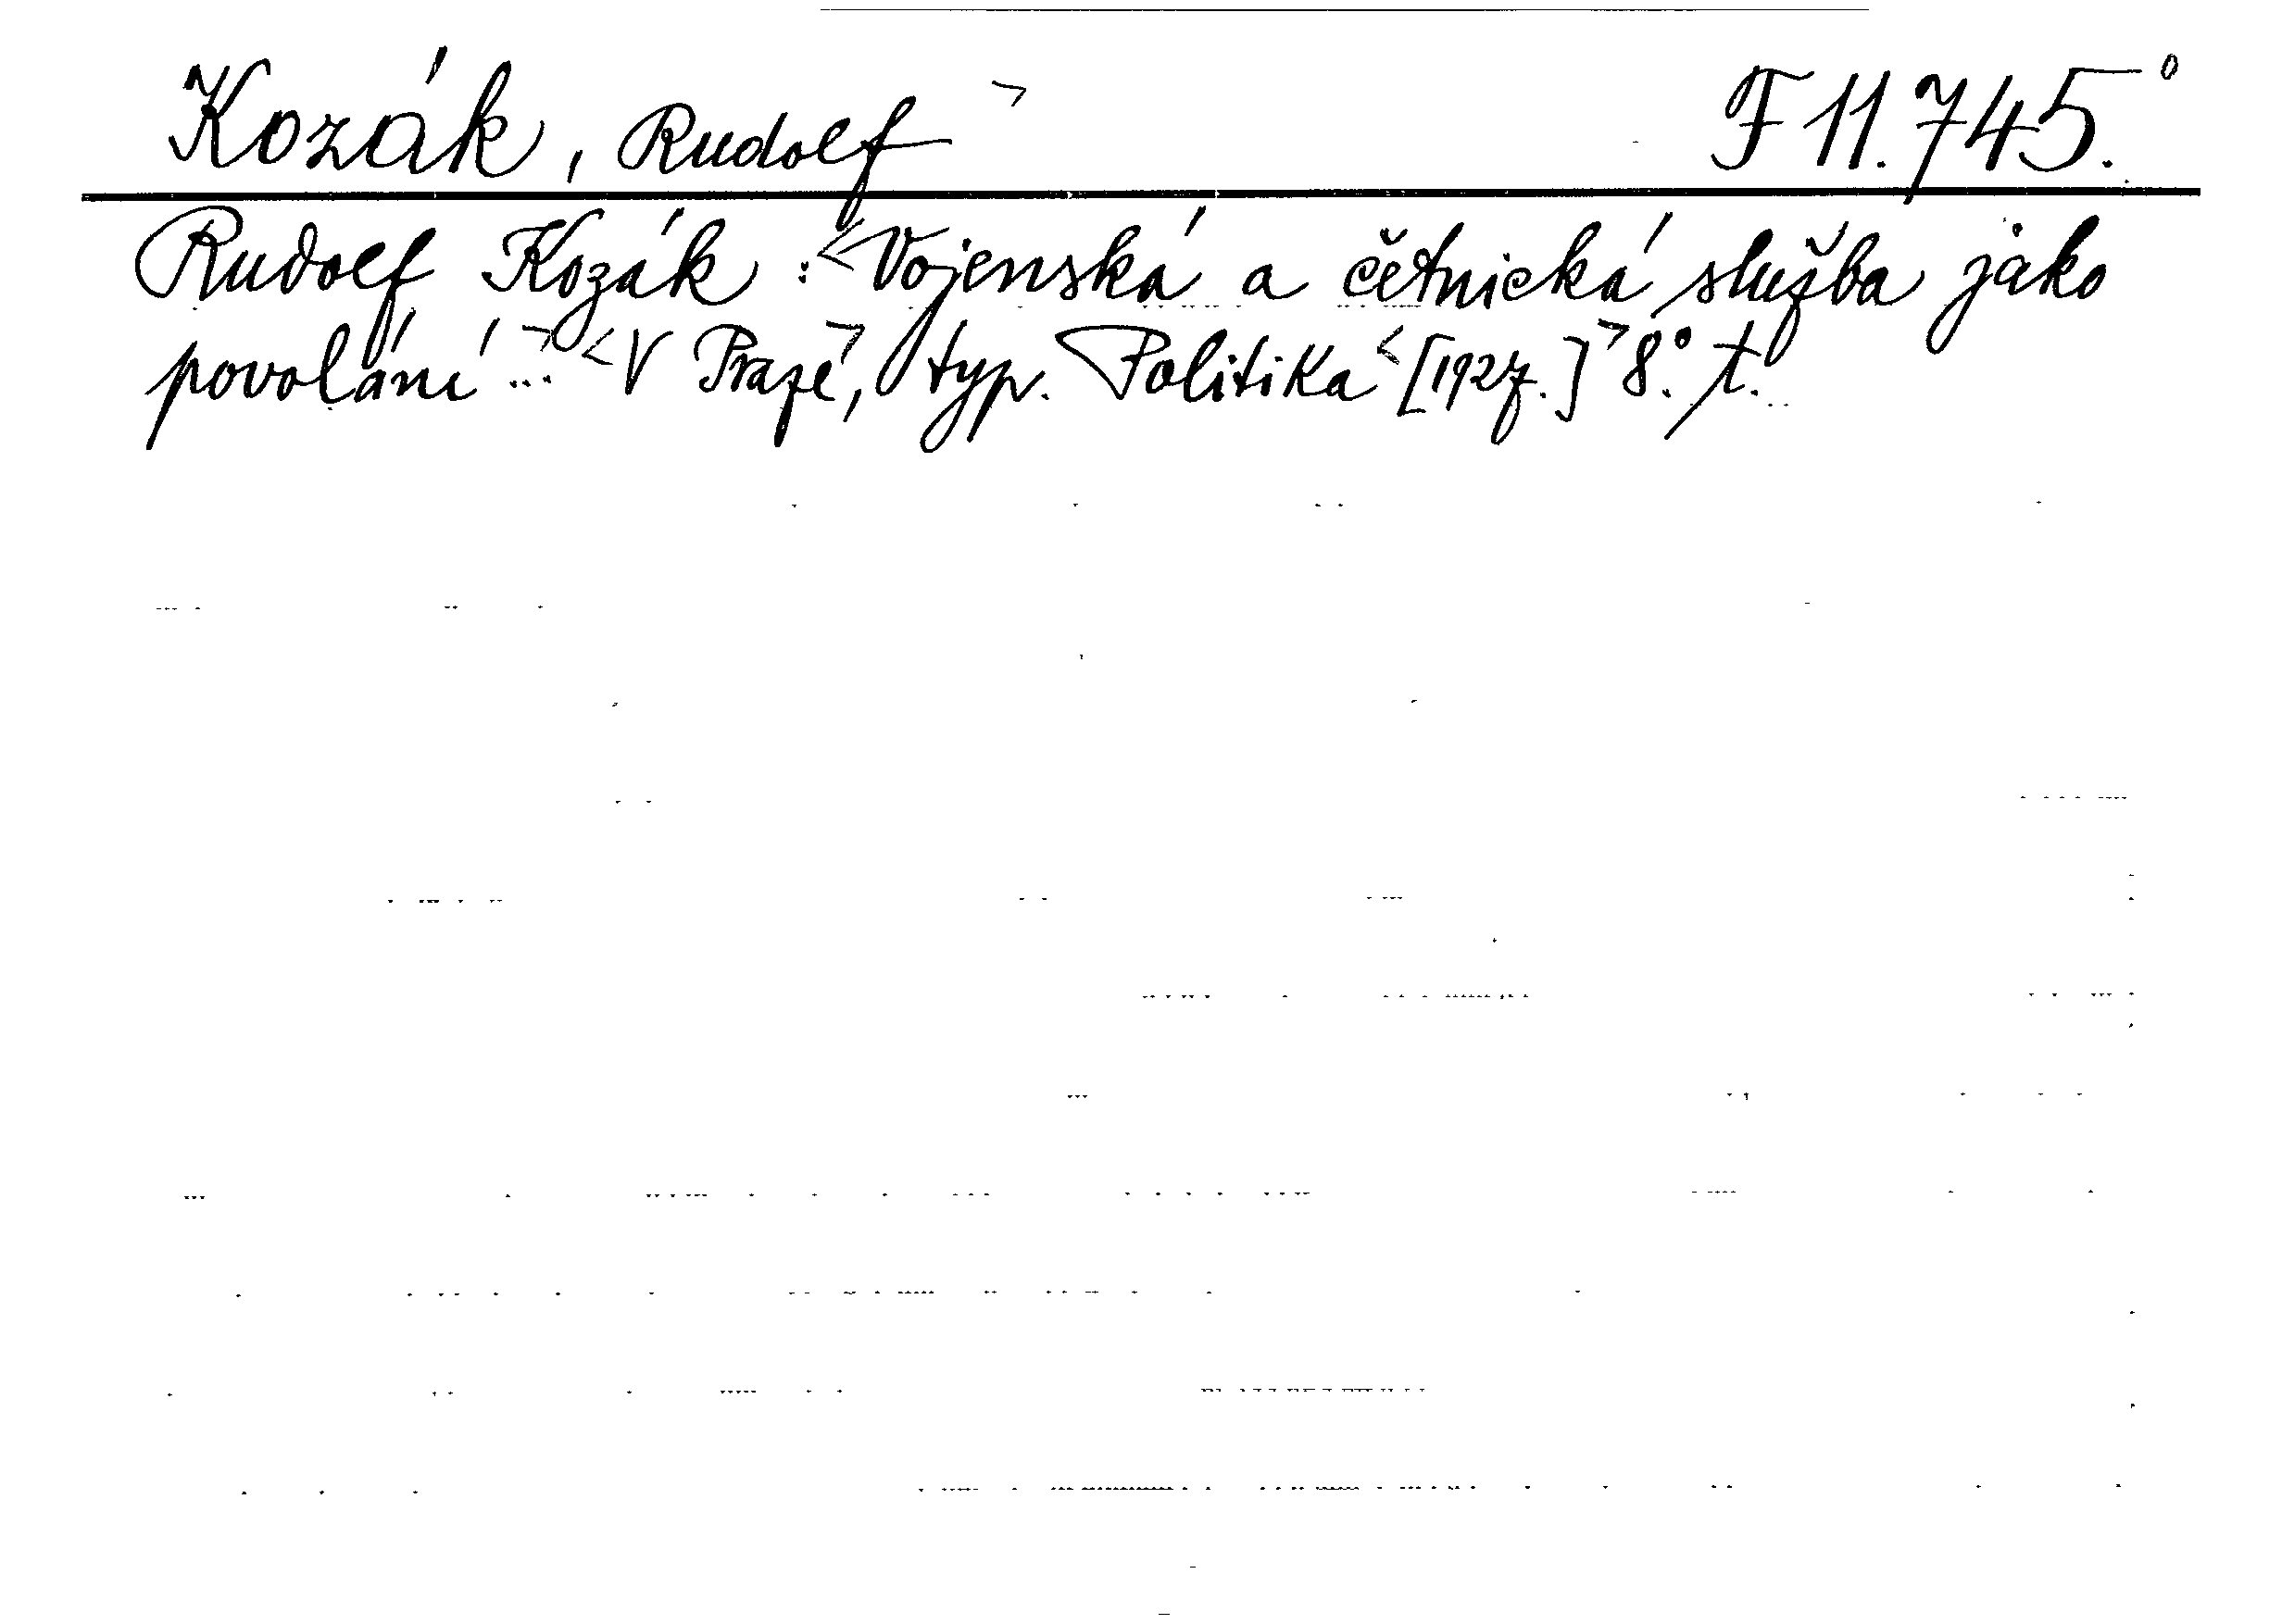 Kozák, Rudolf ¬ F 11.745.°
Rudolf Kozák: <Vojenská a četnická služba jako
povolání ...¬ <V Praze¬, typ. Politika <[1927.]¬ 8°. t.